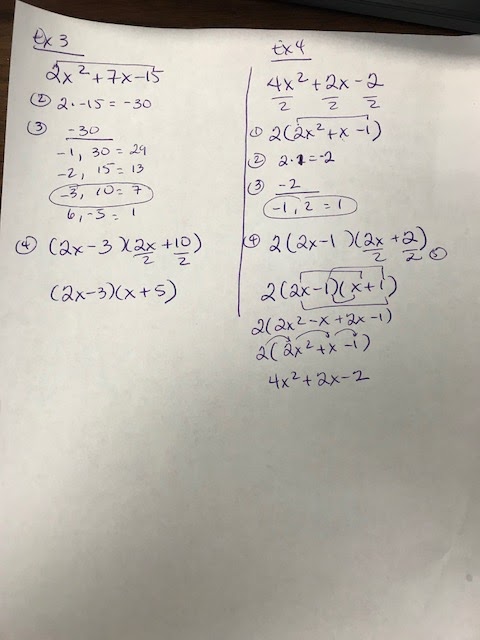 Ex 3
2x² + 7x - 15
② 2 · -15 = -30
③ -30
-1, 30 = 29
-2, 15 = 13
-3, 10 = 7
6, -5 = 1
④ (2x - 3)(2x/2 + 10/2)
(2x - 3)(x + 5)
Ex 4
4x²/2 + 2x/2 - 2/2
① 2(2x² + x - 1)
② 2 · 1 = -2
③ -2
-1, 2 = 1
④ 2(2x - 1)(2x/2 + 2/2) ⑤
2(2x - 1)(x + 1)
2(2x² - x + 2x - 1)
2(2x² + x - 1)
4x² + 2x - 2